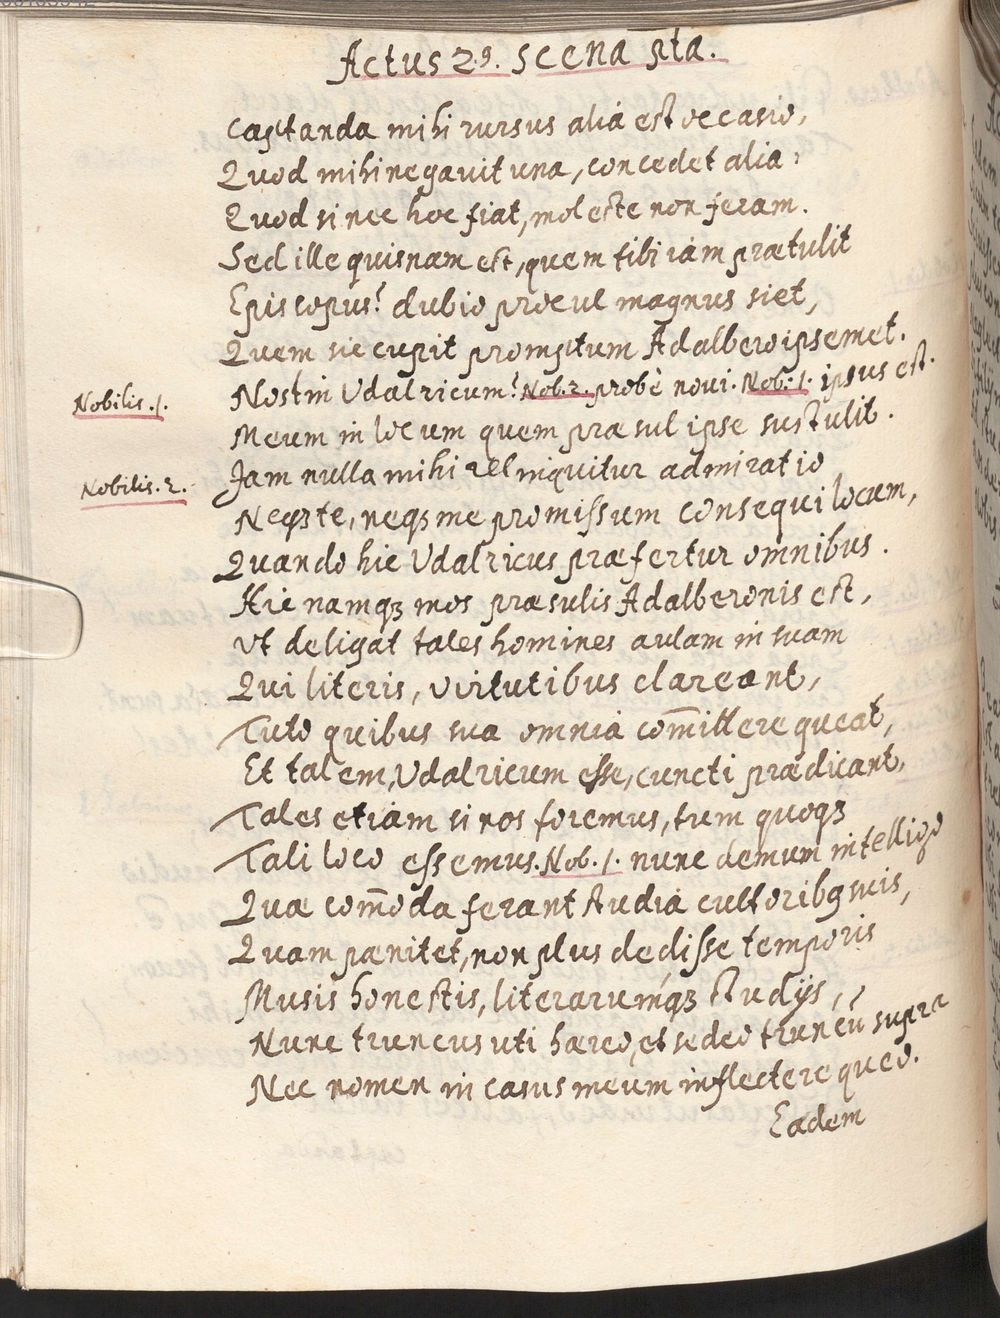 Actus 29. Scena 5ta.
Captanda mihi rursus alia est occasio,
Quod mihi negavit una, concedet alia,
Quod si nec hoc fiat, moleste non feram.
Sed ille quisnam est, quem tibi iam prætulit
Episcopus? dubio procul magnus siet,
Quem sic cupit promptum Adalbero ipsemet.
Nobilis. 1. Nostin Udalricum? Nob. 2. probè novi. Nob: 1. ipsus est.
Meum in locum quem præsul ipse sustulit.
Nobilis. 2. Jam nulla mihi relinquitur admiratio
Neqꝫ te, neqꝫ me promissum consequi locum,
Quando hic Udalricus præfertur omnibus.
Hic namqꝫ mos præsulis Adalberonis est,
Vt deligat tales homines aulam in suam
Qui literis, virtutibus clareant,
Tuto quibus sua omnia com̄ittere queat,
Et talem, Udalricum esse, cuncti prædicant,
Tales etiam si nos foremus, tum quoqꝫ
Tali loco essemus. Nob. 1. nunc demum intelligo
Quæ com̄oda ferant studia cultoribꝯ suis,
Quam pænitet, non plus dedisse temporis
Musis honestis, literarumqꝫ studijs,
Nunc truncus uti hæreo, et sedeo truncū supra
Nec nomen in casus meum inflectere queo.
Eadem